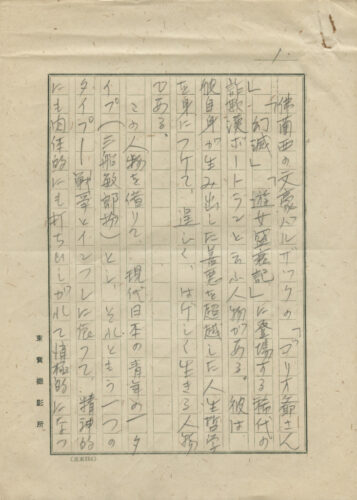 1.
佛蘭西の文豪バルザックの「ゴリオ爺さん
」「幻滅」「遊女盛衰記」に登場する稀代の
詐欺漢ボートランと云ふ人物がある。彼は
彼自身が生み出した善悪を超越した人生哲学
を身につけて、逞しく、はげしく生きる人物
である。
この人物を借りて、現代日本の青年の一タ
イプ(三船敏郎扮)と、それともう一つの
タイプ―戦争とインフレに依って、精神的
にも肉体的にも打ちひしがれて消極的になつ
東寶撮影所